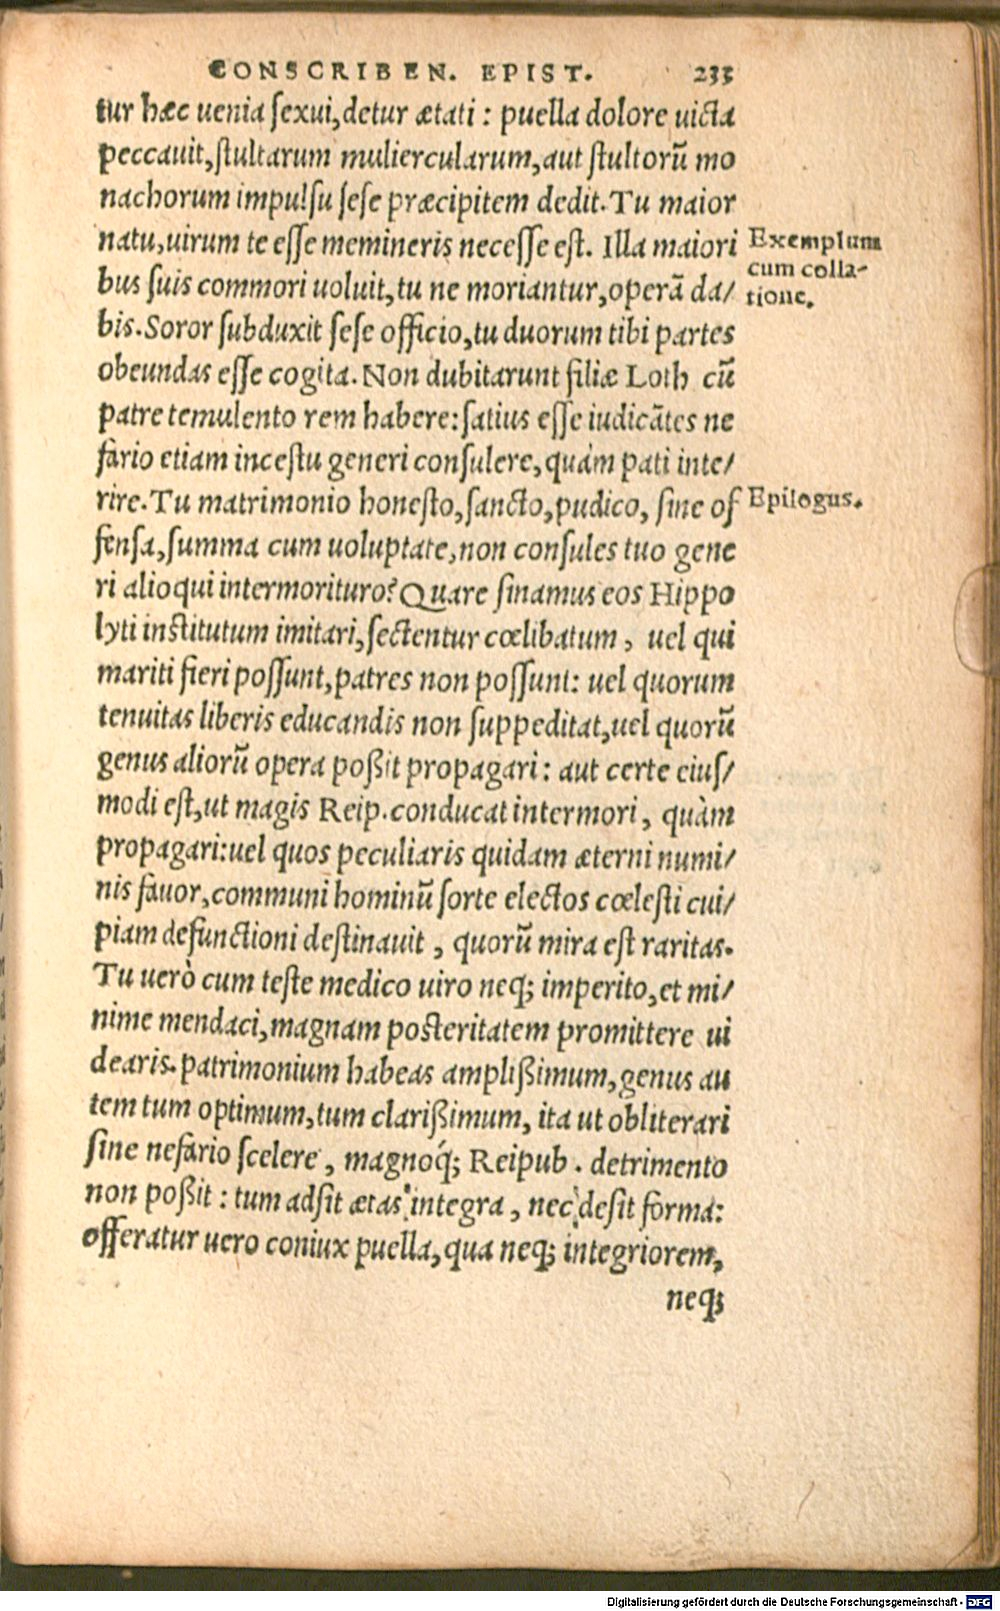 CONSCRIBEN. EPIST. 235
tur hæc uenia sexui, detur ætati: puella dolore uicta
peccauit, stultarum muliercularum, aut stultorũ mo
nachorum impulsu sese præcipitem dedit. Tu maior
natu, uirum te esse memineris necesse est. Illa maiori
Exemplum
bus suis commori uoluit, tu ne moriantur, operã da/
cum colla-
tione.
bis. Soror subduxit sese officio, tu duorum tibi partes
obeundas esse cogita. Non dubitarunt filiæ Loth cũ
patre temulento rem habere: satius esse iudicãtes ne
fario etiam incestu generi consulere, quàm pati inte/
rire. Tu matrimonio honesto, sancto, pudico, sine of
Epilogus.
fensa, summa cum uoluptate, non consules tuo gene
ri alioqui intermorituro? Quare sinamus eos Hippo
lyti institutum imitari, sectentur cœlibatum, uel qui
mariti fieri possunt, patres non possunt: uel quorum
tenuitas liberis educandis non suppeditat, uel quorũ
genus aliorũ opera poßit propagari: aut certe eius/
modi est, ut magis Reip. conducat intermori, quàm
propagari: uel quos peculiaris quidam æterni numi/
nis fauor, communi hominũ sorte electos cœlesti cui/
piam defunctioni destinauit, quorũ mira est raritas.
Tu uerò cum teste medico uiro neq; imperito, et mi/
nime mendaci, magnam posteritatem promittere ui
dearis. patrimonium habeas amplißimum, genus au
tem tum optimum, tum clarißimum, ita ut obliterari
sine nefario scelere, magnoq́; Reipub. detrimento
non poßit: tum adsit ætas integra, nec desit forma:
offeratur uero coniux puella, qua neq; integriorem,
neq;
Digitalisierung gefördert durch die Deutsche Forschungsgemeinschaft - DFG